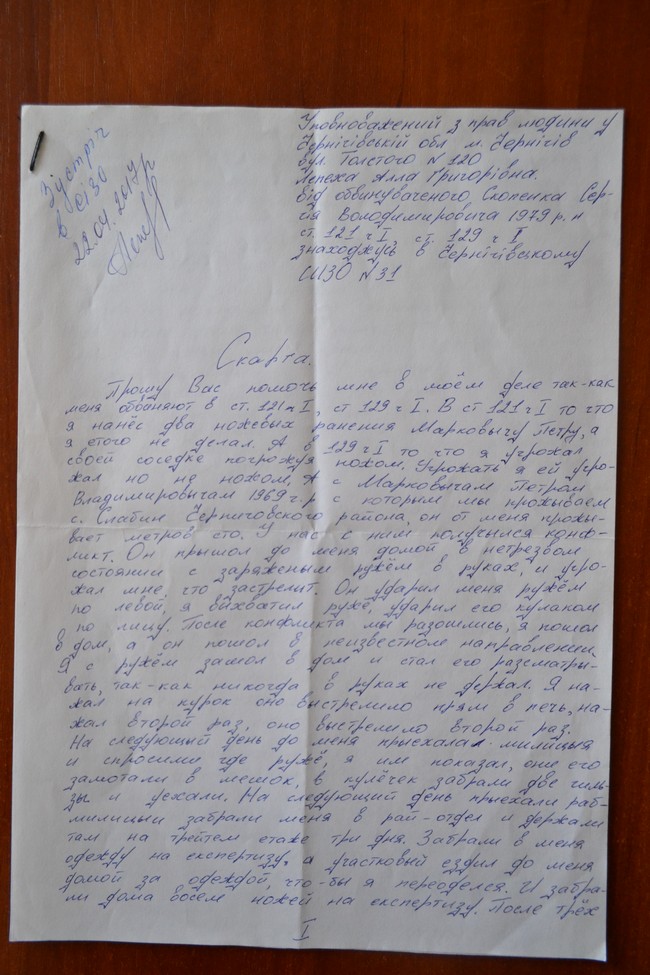 Зустріч
в сізо
22.04.2017р
Уповноважений з прав людини у
Чернігівській обл м. Чернігів
вул. Толстого N 120
Лепеха Алла Григорівна.
від обвинуваченого Скопенка Сер-
гія Володимировича 1979 р.н
ст. 121 ч I, ст. 129 ч I
знаходжусь в Чернігівському
СИЗО N 31
Скарга.
Прошу Вас помочь мне в моём деле так-как
меня обвиняют в ст. 121 ч I, ст 129 ч I. В ст 121 ч I то что
я нанёс два ножевых ранения Марковычу Петру, а
я етого не делал. А в 129 ч I то что я угрожал
своей соседке погрожуя ножом. Угрожать я ей угро-
жал но не ножом. А с Марковычам Петром
Владимировычам 1969 г.р с которым мы прожываем
с. Слабин Черниговского района, он от меня прожы-
вает метров сто. У нас с ним получылся конф-
ликт. Он прышол до меня домой в нетрезвом
состоянии с заряженым ружём в руках, и угро-
жал мне, что застрелит. Он ударил меня ружём
по левой, я выхватил ружё, ударил его кулаком
по лицу. После конфликта мы разошлись, я пошол
в дом, а он пошол в неизвестном направлении.
Я с ружём зашол в дом и стал его разсматры-
вать, так-как никогда в руках не держал. Я на-
жал на курок оно выстрелило прям в печь, на-
жал второй раз, оно выстрелило второй раз.
На следующый день до меня прыехала милицыя
и спросили где ружё, я им показал, они его
замотали в мешок, в кулёчек забрали две гиль-
зы и уехали. На следующий день прыехали раб-
милицыи забрали меня в рай-отдел и держали
там на третем етаже три дня. Забрали в меня
одежду на експертизу, а участковый ездил до меня
домой за одеждой, что-бы я переоделся. И забра-
ли дома восем ножей на експертизу. После трёх
I